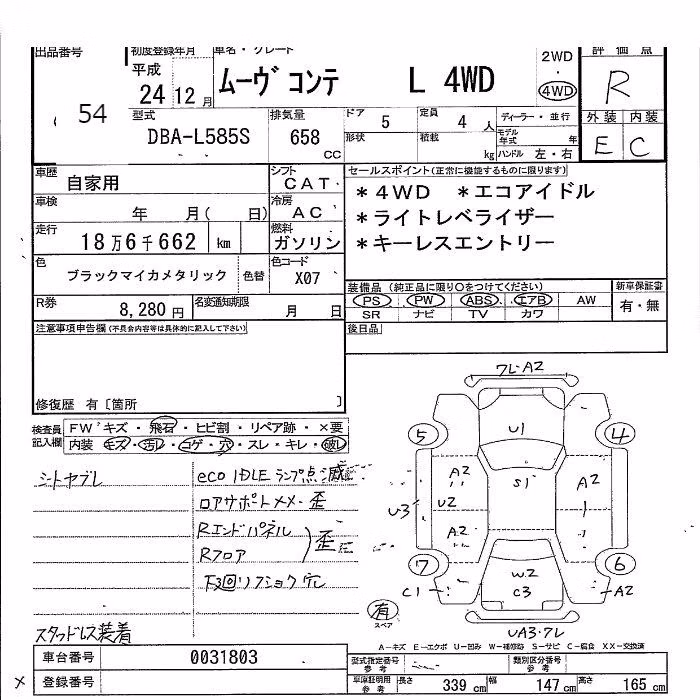 出品番号 初度登録年月 車名・グレード 2WD 評価点
平成 ムーヴ コンテ L 4WD ・ R
24 12月 4WD
54 型式 排気量 ドア 5 定員 4人 ディーラー・並行 外装 内装
DBA-L585S 658 CC 形状 積載 kg モデル年式 年 E C
ハンドル 左・右
車歴 自家用 シフト CAT セールスポイント(正常に機能するものに限ります)
車検 年 月( 日) 冷房 AC *4WD *エコアイドル
走行 18万6千662 km 燃料 ガソリン *ライトレベライザー
*キーレスエントリー
色 ブラックマイカメタリック 色替 色コード X07
装備品(純正品に限り○をつけてください) 新車保証書
R券 8,280円 名変通知期限 月 日 PS PW ABS エアB AW 有・無
SR ナビ TV カワ
注意事項申告欄(不具合内容等は具体的に記入して下さい) 後日品
修復歴 有〔箇所 〕
検査員記入欄 FWキズ・飛石・ヒビ割・リペア跡・×要
内装 キズ・汚レ・コゲ・穴・スレ・キレ・破レ
シートヤブレ eco IDLEランプ点滅
ロアサポートメメ・歪
Rエンドパネル 歪
Rフロア
下3回リアショク穴
スタッドレス装着
7L-A2
5 U1 4
A2 S1 A2
U3 U2
A2
7 6
W2
C1 C3 A2
有 スペア
UA3・7L
A-キズ E-エクボ U-凹み W-補修跡 S-サビ C-腐食 XX-交換済
車台番号 0031803 型式指定番号 参考 類別区分番号 参考
登録番号 車庫証明用 参考 長さ 339cm 幅 147cm 高さ 165cm